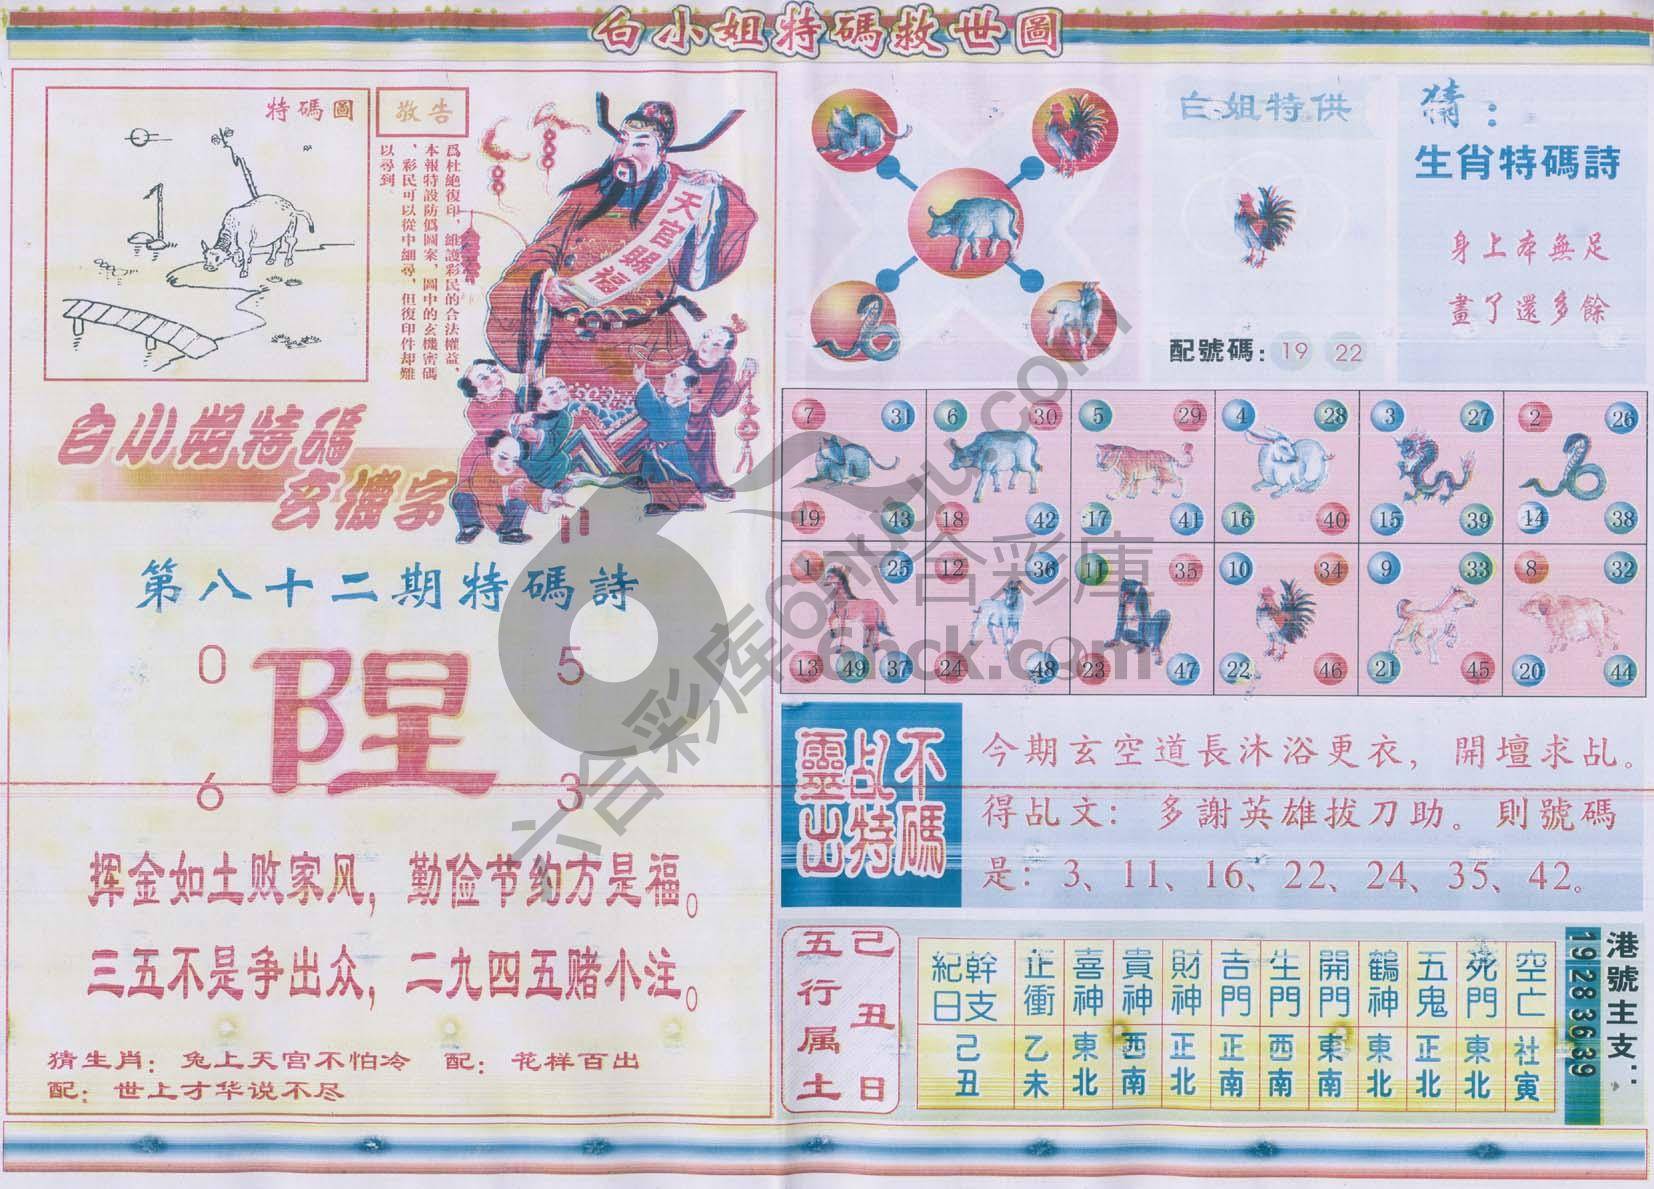 白小姐特碼救世圖
特碼圖
敬告
爲杜絶復印，維護彩民的合法權益，
本報特設防僞圖案，圖中的玄機密碼
，彩民可以從中細尋，但復印件却難
以尋到。
天官賜福
白小姐特碼
玄機字
第八十二期特碼詩
0 5
陧
6 3
挥金如土败家风，勤俭节约方是福。
三五不是争出众，二九四五赌小注。
猜生肖：兔上天宫不怕冷 配：花样百出
配：世上才华说不尽
白姐特供
配號碼：19 22
猜：
生肖特碼詩
身上本無足
畫了還多餘
7 31 6 30 5 29 4 28 3 27 2 26
19 43 18 42 17 41 16 40 15 39 14 38
1 25 12 36 11 35 10 34 9 33 8 32
13 49 37 24 48 23 47 22 46 21 45 20 44
不碼
乩特
靈出
今期玄空道長沐浴更衣，開壇求乩。
得乩文：多謝英雄拔刀助。則號碼
是：3、11、16、22、24、35、42。
己丑日
五行属土
幹支紀日 正衝 喜神 貴神 財神 吉門 生門 開門 鶴神 五鬼 死門 空亡
己丑 乙未 東北 西南 正北 正南 西南 東南 東北 正北 東北 社寅
港號主支：
19 28 36 39
六合彩库
六合彩庫
6hck.com